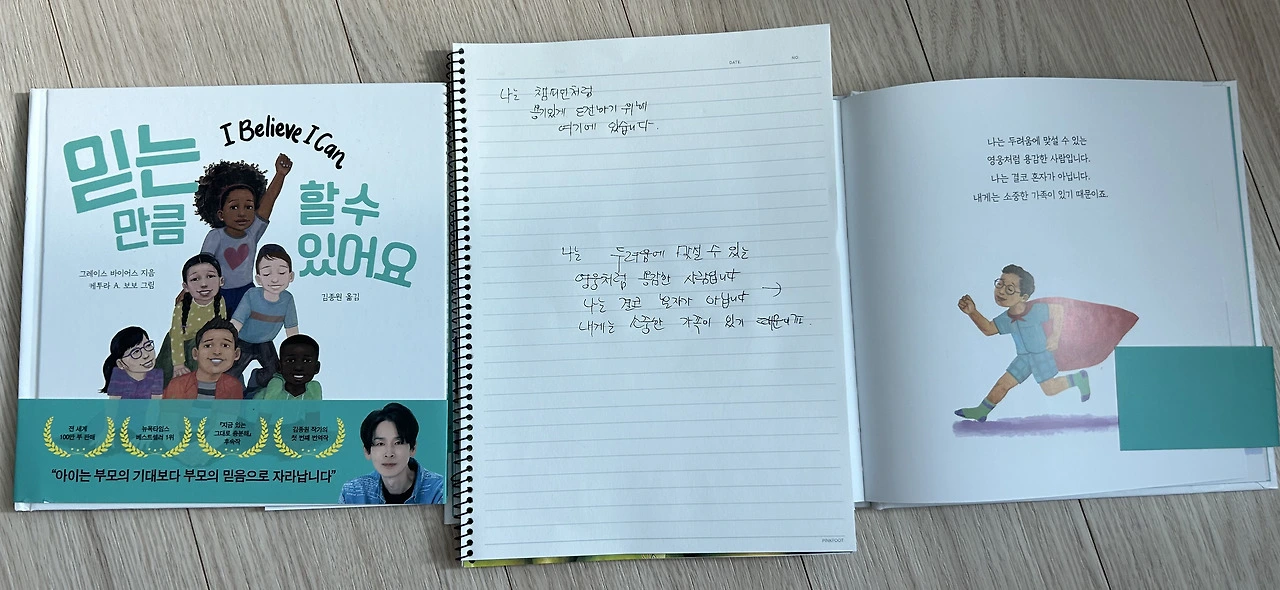 I Believe I Can
믿는
만큼
할 수
있어요
그레이스 바이어스 지음
케투라 A. 보보 그림
김종원 옮김
전 세계
100만 부 판매
뉴욕타임스
베스트셀러 1위
『지금 있는
그대로 충분해』
후속작
김종원 작가의
첫 번째 번역작
“아이는 부모의 기대보다 부모의 믿음으로 자라납니다”
DATE
NO
나는 챔피언처럼
용기있게 도전하기 위해
여기에 있습니다.
나는 두려움에 맞설 수 있는
영웅처럼 용감한 사람입니다
나는 결코 혼자가 아닙니다 →
내게는 소중한 가족이 있기 때문이죠.
PINKFOOT
나는 두려움에 맞설 수 있는
영웅처럼 용감한 사람입니다.
나는 결코 혼자가 아닙니다.
내게는 소중한 가족이 있기 때문이죠.